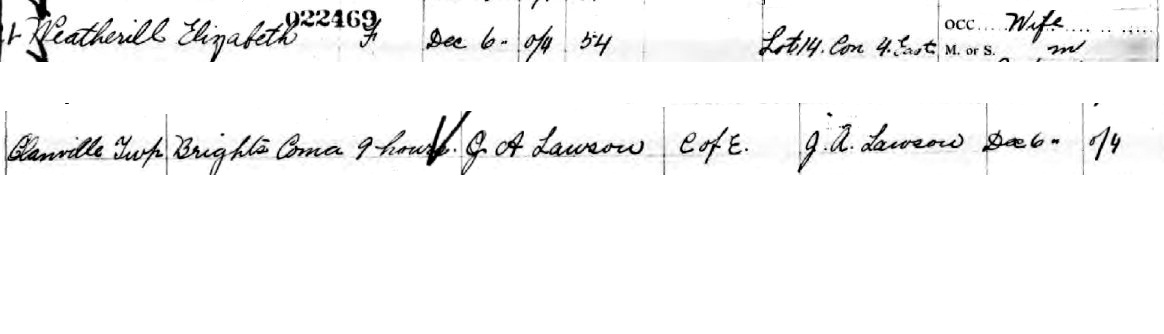 022469
Weatherill Elizabeth F Dec 6- 0/4 54 Lot 14. Con 4. East OCC.... Wife
M. or S. m
Glanville Twp Brights Coma 9 hours. J. A Lawson C of E. J. A. Lawson Dec 6- 0/4